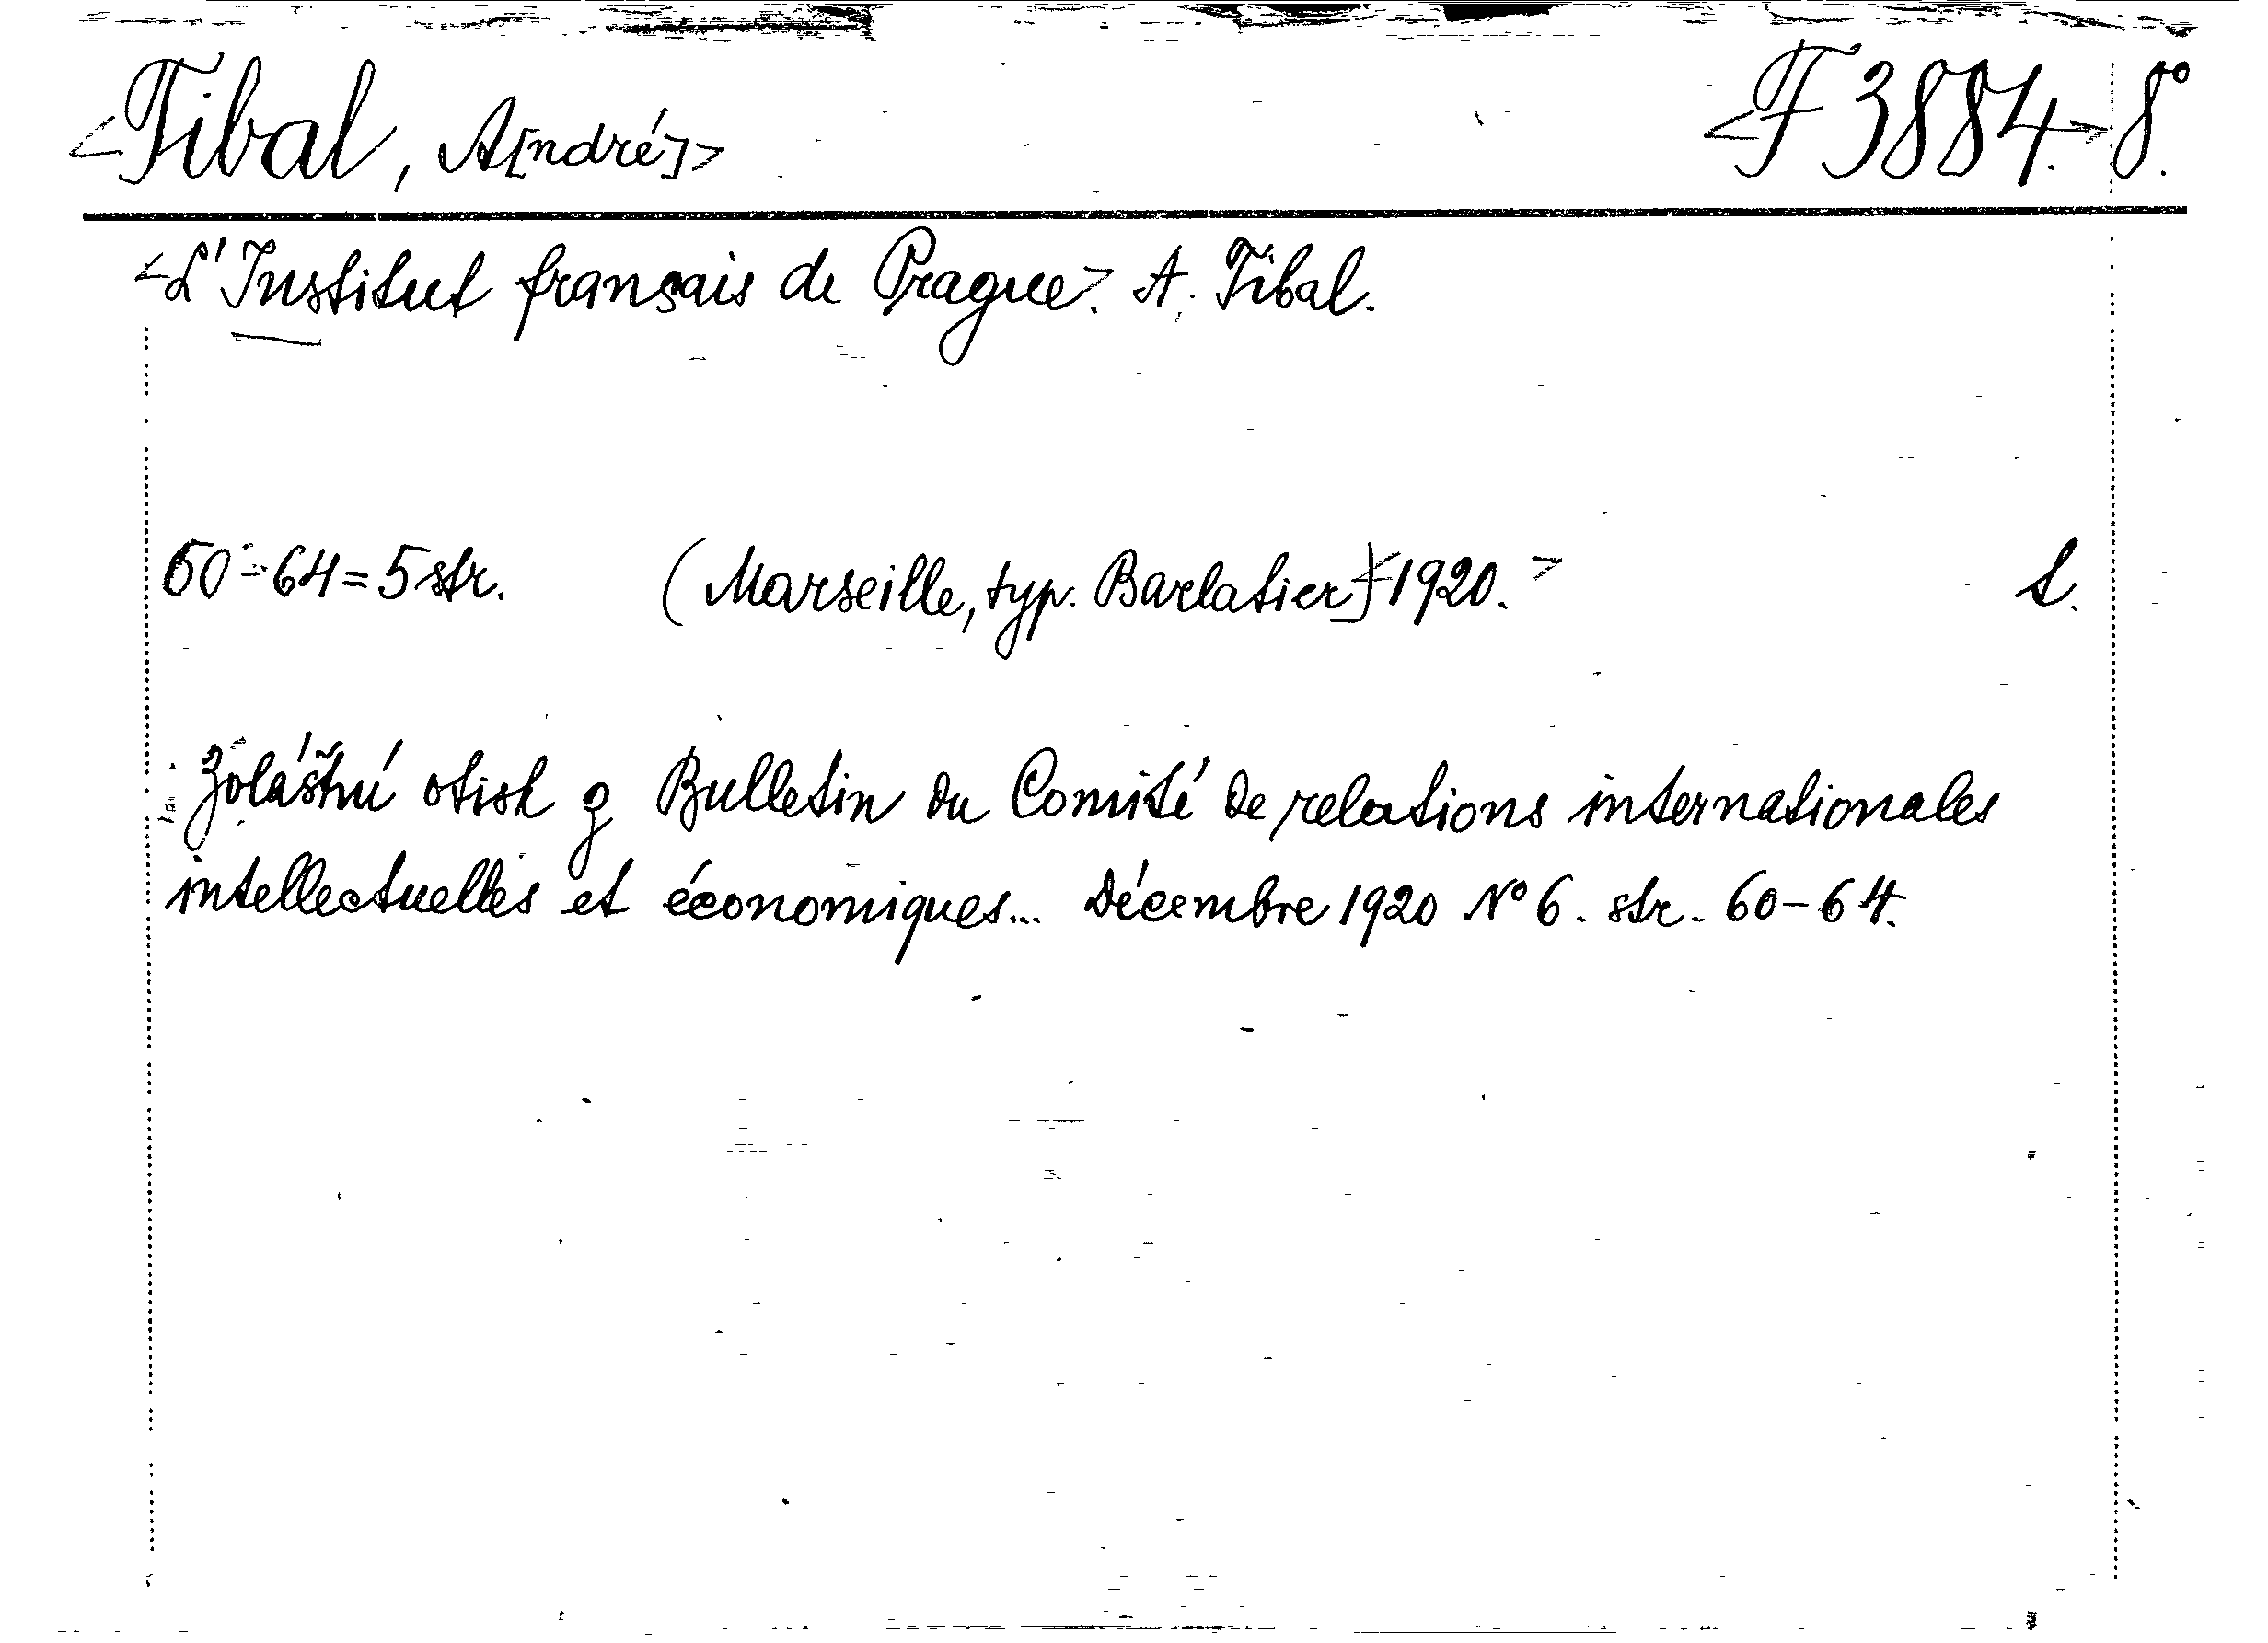 <Tibal, A[ndré]> <F 3884.> 8°.
<L'Institut français de Prague>. A. Tibal.
60-64=5 str. (Marseille, typ. Barlatier) <1920.> L.
Zvláštní otisk z Bulletin du Comité de relations internationales
intellectuelles et économiques... Décembre 1920 N° 6. str. 60-64.